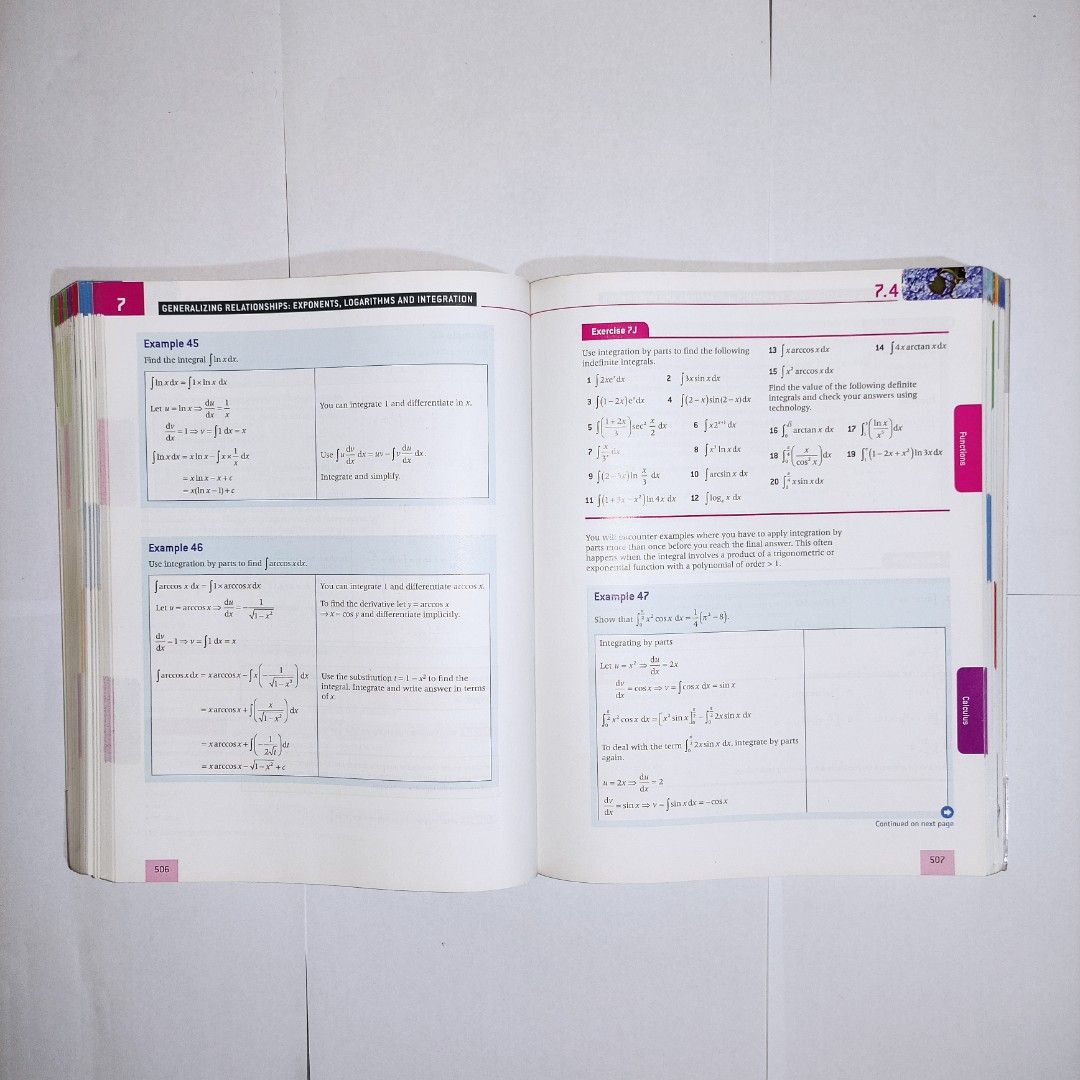 7
GENERALIZING RELATIONSHIPS: EXPONENTS, LOGARITHMS AND INTEGRATION
Example 45
Find the integral ∫ln x dx.
∫ln x dx = ∫1 × ln x dx
Let u = ln x ⇒ du/dx = 1/x
You can integrate 1 and differentiate ln x.
dv/dx = 1 ⇒ v = ∫1 dx = x
∫ln x dx = x ln x − ∫x × 1/x dx
Use ∫u dv/dx dx = uv − ∫v du/dx dx.
= x ln x − x + c
Integrate and simplify.
= x(ln x − 1) + c
Example 46
Use integration by parts to find ∫arccos x dx.
∫arccos x dx = ∫1 × arccos x dx
You can integrate 1 and differentiate arccos x.
Let u = arccos x ⇒ du/dx = −1/√(1−x²)
To find the derivative let y = arccos x
⇒ x = cos y and differentiate implicitly.
dv/dx = 1 ⇒ v = ∫1 dx = x
∫arccos x dx = x arccos x − ∫x(−1/√(1−x²)) dx
Use the substitution t = 1 − x² to find the
integral. Integrate and write answer in terms
of x
= x arccos x + ∫(x/√(1−x²)) dx
= x arccos x + ∫(−1/(2√t)) dt
= x arccos x − √(1−x²) + c
506
7.4
Exercise 7J
Use integration by parts to find the following
indefinite integrals.
1 ∫2xeˣ dx
2 ∫3x sin x dx
3 ∫(1 − 2x)eˣ dx
4 ∫(2 − x) sin(2 − x) dx
5 ∫((1 + 2x)/3) sec² x/2 dx
6 ∫x2ˣ⁺¹ dx
7 ∫x/3ˣ dx
8 ∫x³ ln x dx
9 ∫(2 − 3x) ln x/3 dx
10 ∫arcsin x dx
11 ∫(1 + 3x − x²) ln 4x dx
12 ∫logₐ x dx
13 ∫x arccos x dx
14 ∫4x arctan x dx
15 ∫x² arccos x dx
Find the value of the following definite
integrals and check your answers using
technology.
16 ∫ arctan x dx
17 ∫ (ln x/x³) dx
18 ∫ (x/cos² x) dx
19 ∫ (1 − 2x + x²) ln 3x dx
20 ∫ x sin x dx
You will encounter examples where you have to apply integration by
parts more than once before you reach the final answer. This often
happens when the integral involves a product of a trigonometric or
exponential function with a polynomial of order > 1.
Example 47
Show that ∫₀^(π/2) x² cos x dx = 1/4(π² − 8).
Integrating by parts
Let u = x² ⇒ du/dx = 2x
dv/dx = cos x ⇒ v = ∫cos x dx = sin x
∫₀^(π/2) x² cos x dx = [x² sin x]₀^(π/2) − ∫₀^(π/2) 2x sin x dx
To deal with the term ∫₀^(π/2) 2x sin x dx, integrate by parts
again.
u = 2x ⇒ du/dx = 2
dv/dx = sin x ⇒ v = ∫sin x dx = −cos x
Continued on next page
507
Functions
Calculus